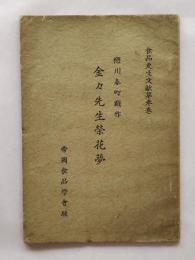 食品文学文献第参巻
恋川春町戯作
金々先生榮花夢
帝國食品學會版